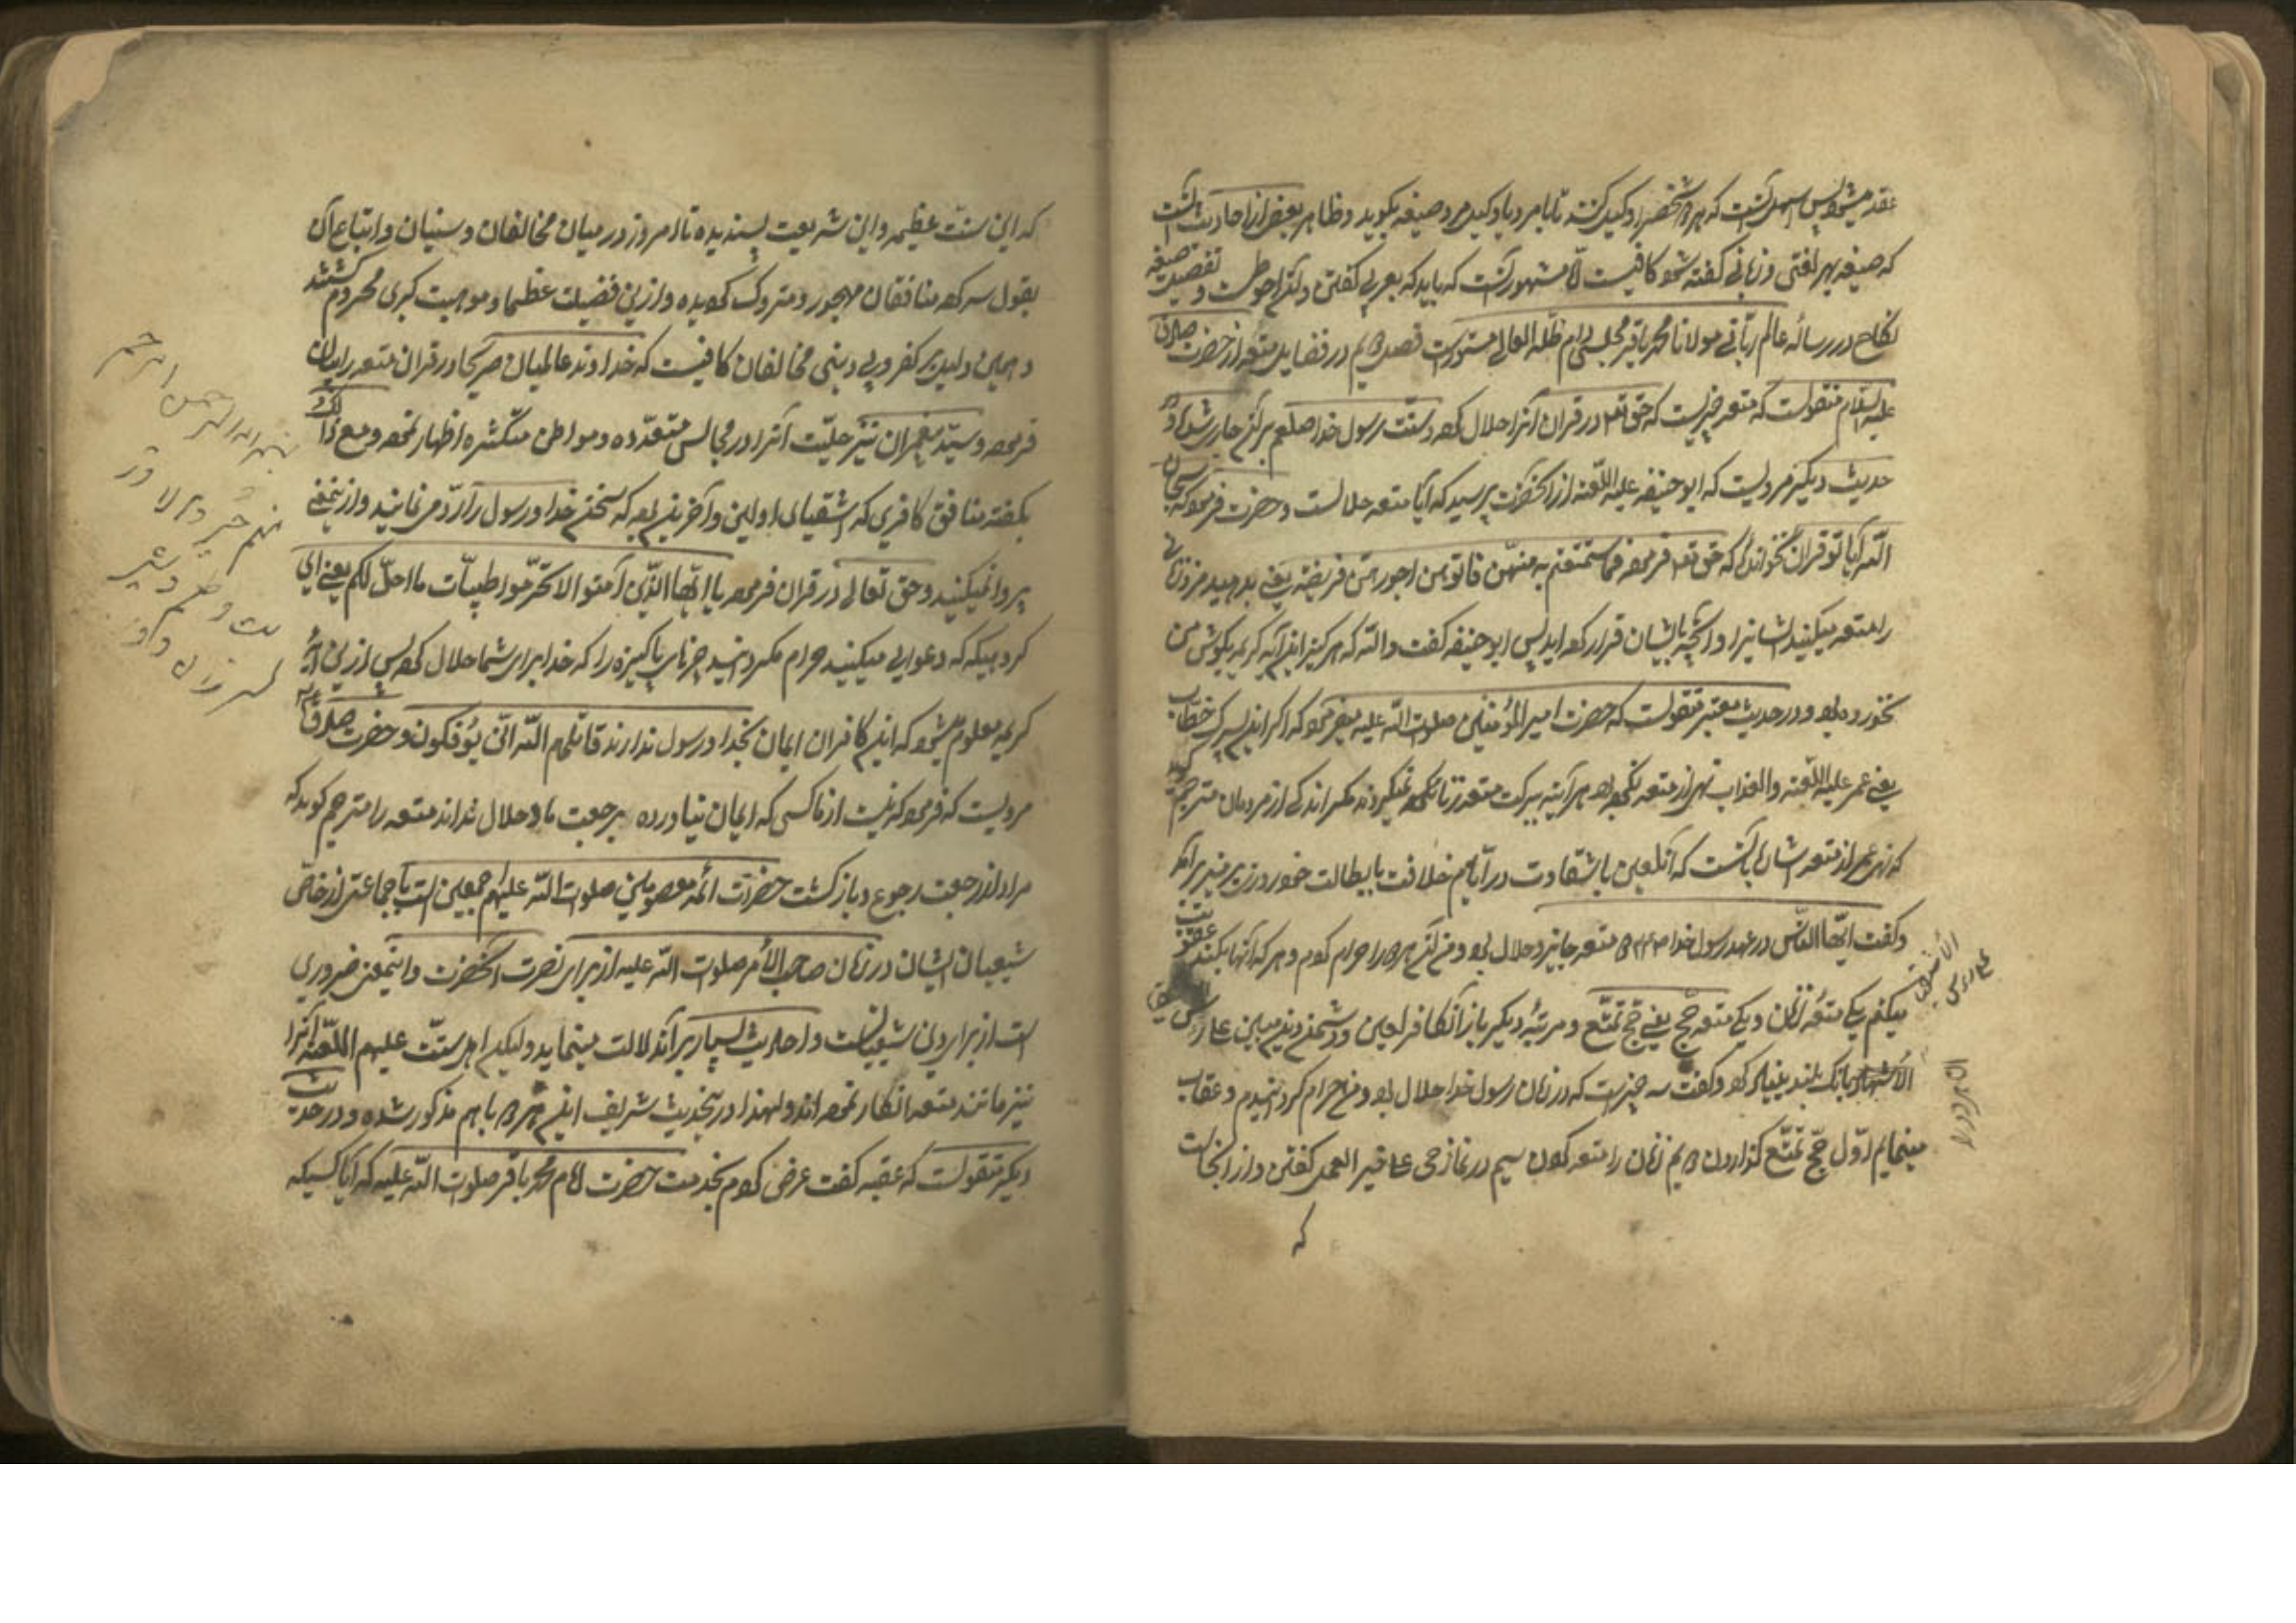 عقد میشود پس اسهل آنست که هر دو شخصی را وکیل کنند تا با مرد یا وکیل مرد صیغه بگوید و ظاهر بعضی از احادیث آنست
که صیغه بهر لغتی و زبانی گفته شود کافیست امّا مشهور آنست که باید که بعربی گفتن و آنرا احوطست و تفصیل صیغه
نکاح در رساله عالم ربّانی مولانا محمد باقر مجلسی دام ظلّه العالی مستورست فصل دویم در فضایل متعه از حضرت صادق
علیه السلام منقولست که متعه چیزیست که حق تعالی در قران آنرا حلال کرده و سنّت رسول خدا صلعم بر آن جاری شده و در
حدیث دیگر مرویست که ابو حنیفه علیه اللّعنه از آنحضرت پرسید که آیا متعه حلالست و حضرت فرمود که سبحان
اللّه آیا تو قران نخوانده‌ای که حق تعالی فرموده فما استمتعتم به منهنّ فاتوهنّ اجورهنّ فریضة یعنی بدهید مزد زنانی
را متعه میکنید ایشانرا و آنچه با ایشان قرار کرده‌اید پس ابو حنیفه گفت واللّه که هرگز این آیه کریمه بگوش من
نخورده بود و در حدیث معتبر منقولست که حضرت امیر المؤمنین صلوات اللّه علیه میفرمود که اگر این پسرک خطاب
یعنی عمر علیه اللّعنه والعذاب نهی از متعه نکرده بود هر آینه ببرکت متعه زنا نمیکردند مگر اندکی از مردمان مترجم گوید
که نهی عمر از متعه باین آنست که آنلعین باشقاوت در ایّام خلافت بابطالت خود روزی بر منبر برآمد
و گفت ایّها النّاس در عهد رسول خدا دو متعه جایز و حلال بود و من آن هر دو را حرام کردم و هر که آنها بکند عقوبت
میکنم یکی متعه زنان و یکی متعه حج یعنی حج تمتّع و مرتبهٔ دیگر باز آنکافر لعین و دشمن دین مبین علی رؤس
الأشهاد بانک بلند بنیاد کرد و گفت سه چیزست که در زمان رسول خدا حلال بود و من حرام گردانیدم و عقاب
مینمایم اوّل حجّ تمتّع گذاردن دویم زنان را متعه کردن سیم در نماز حی علی خیر العمل گفتن و از آنجاست
که
که این سنّت عظیمه و این شریعت پسندیده تا امروز در میان مخالفان و سنیان و اتباع آن
بقول سرکرده منافقان مهجور و متروک گردیده و ازین فضیلت عظما و موهبت کبری محروم گشتند
و همین دلیل بر کفر و بی دینی مخالفان کافیست که خداوند عالمیان صریحا در قران متعه را بیان
فرموده و سیّد پیغمبران نیز حلیّت آنرا در مجالس متعدّده و مواطن متکثره اظهار نموده و مع ذلک
بگفته منافق کافری که اشقیای اولین و آخرین بوده که سخن خدا و رسول را ردّ می نمایند و ازینمعنی
پروا نمیکنند و حق تعالی در قران فرموده یا ایّها الذّین آمنوا لا تحرّموا طیبّات ما احلّ لکم یعنی ای
گروهیکه که دعوای میکنید حرام مگردانید چیزهای پاکیزه را که خدا برای شما حلال کرده پس ازین آیهٔ
کریمه معلوم میشود که این کافران ایمان بخدا و رسول ندارند قاتلهم اللّه انّی یؤفکون و حضرت صادق ع
مرویست که فرمود که نیست از ما کسی که ایمان نیاورده برجعت ما و حلال نداند متعه را مترجم گوید که
مراد از رجعت رجوع و بازگشت حضرات ائمه معصومین صلوات اللّه علیهم اجمعین است با جماعتی از خاصّ
شیعیان ایشان در زمان صاحب الأمر صلوات اللّه علیه از برای نصرت آنحضرت و اینمعنی ضروری
است از برای دین شیعیانست و احادیث بسیار بر آن دلالت مینماید ولیکن اهل سنّت علیهم اللّعنه آنرا
نیز مانند متعه انکار نموده‌اند و لهذا در اینحدیث شریف این هر دو با هم مذکور شده و در حدیث
دیگر منقولست که عقبه گفت عرض کردم بخدمت حضرت امام محمد باقر صلوات اللّه علیه که آیا کسیکه
بسم الله الرحمن الرحیم